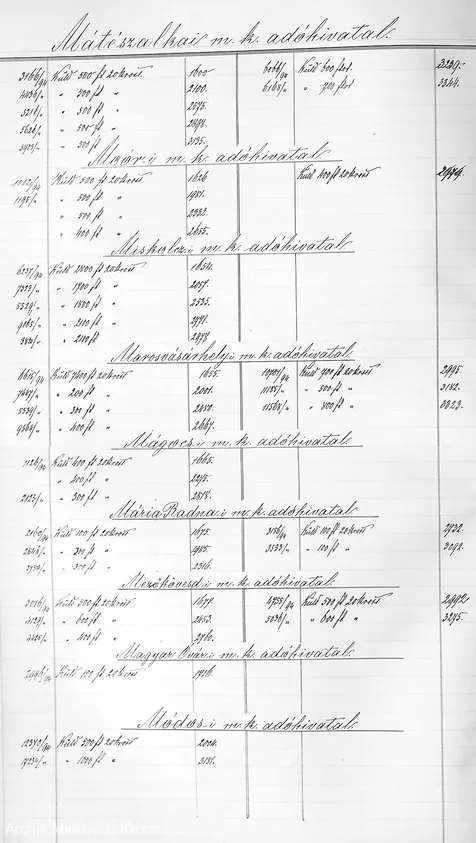 Mátészalkai m. k. adóhivatal.
3166/94 Küld 500 ft 20 krost 1600 6066/94 Küld 600 ftot. 3239.
4436/„ „ 300 ft „ 2100. 6165/„ „ 700 ftot. 3344.
5218/„ „ 500 ft „ 2575.
5626/„ „ 500 ft „ 2698.
5975/„ „ 500 ft „ 3135.
Moór-i m. k. adóhivatal.
Küld 500 ft 20 krost 1626 Küld 400 ft 20 krost
1195/„ „ 500 ft „ 1981.
„ 500 ft „ 2332.
„ 400 ft „ 2655.
Miskolcz-i m. k. adóhivatal
6237/94 Küld 2800 ft 20 krost 1654.
7323/„ „ 1700 ft „ 2057.
„ 1800 ft „ 2535.
9065/„ „ 2100 ft „ 2771.
„ 2100 ft 2978
Marosvásárhely-i m. k. adóhivatal.
6615/94 Küld 7400 ft 20 krost 1655. 10701/94 Küld 700 ft 20 krost 2995.
7647/„ „ 200 ft „ 2001. 11185/„ „ 500 ft „ 3182.
8539/„ „ 300 ft „ 2450. 11568/„ „ 800 ft „ 3323.
9566/„ „ 400 ft „ 2667.
Mágócs-i m. k. adóhivatal.
1126/94 Küld 400 ft 20 krost 1665.
„ 400 ft „ 2275.
2125/„ „ 300 ft „ 2818.
Mária Radna-i m. k. adóhivatal.
2160/94 Küld 100 ft 20 krost 1675. 3156/94 Küld 100 ft 20 krost 2732.
„ 200 ft „ 1985. 3533/„ „ 100 ft „ 3092.
„ 300 ft „ 2316.
Mezőkövesd-i m. k. adóhivatal.
3016/94 Küld 500 ft 20 krost 1677. 4755/94 Küld 500 ft 20 krost 2992
4129/„ „ 600 ft „ 2453. 5036/„ „ 600 ft „ 3295.
4425/„ „ 400 ft „ 2760.
Magyar Óvár-i m. k. adóhivatal.
2996/94 Küld 100 ft 20 krost 1716.
Módos-i m. k. adóhivatal.
12370/94 Küld 500 ft 20 krost 2004.
17234/„ „ 1000 ft „ 3181.